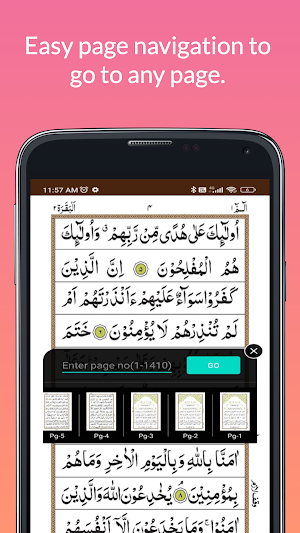 Easy page navigation to
go to any page.
11:57 AM
البقرة ٢
٤
الٓمّٓ ١
اُولٰٓئِكَ عَلٰى هُدًى مِّنْ رَّبِّهِمْ ۙ وَاُولٰٓئِكَ
هُمُ الْمُفْلِحُوْنَ ۝۵ اِنَّ الَّذِيْنَ
كَفَرُوْا سَوَآءٌ عَلَيْهِمْ ءَاَنْذَرْتَهُمْ اَمْ
لَمْ تُنْذِرْهُمْ لَا يُؤْمِنُوْنَ ۝۶ خَتَمَ
Enter page no(1-1410)
GO
Pg-5
Pg-4
Pg-3
Pg-2
Pg-1
اٰمَنَّا بِاللّٰهِ وَبِالْيَوْمِ الْاٰخِرِ وَمَا هُمْ
بِمُؤْمِنِيْنَ ۝۸ يُخٰدِعُوْنَ اللّٰهَ وَالَّذِيْنَ
اٰمَنُوْا ۚ وَمَا يَخْدَعُوْنَ اِلَّاۤ اَنْفُسَهُمْ